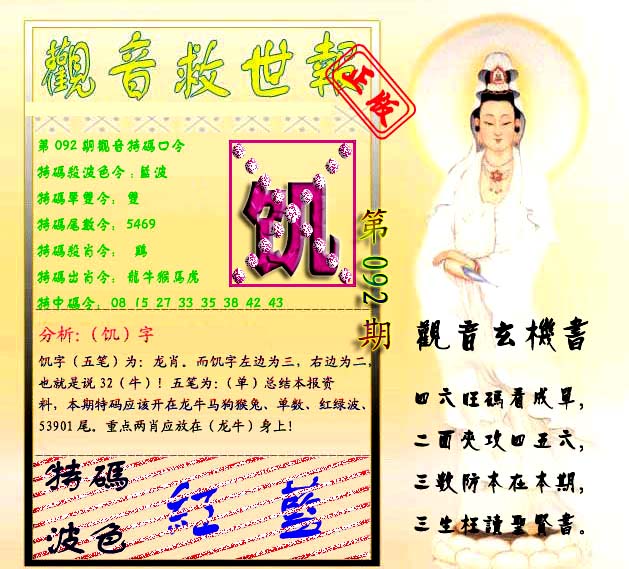 觀音救世報
正版
第 092 期觀音特碼口令
特碼殺波色令：藍波
特碼單雙令： 雙
特碼尾數令： 5469
特碼殺肖令： 鷄
特碼出肖令： 龍牛猴馬虎
特中碼令： 08 15 27 33 35 38 42 43
饥
第 092 期
分析：（饥）字
饥字（五笔）为：龙肖。而饥字左边为三，右边为二，
也就是说 32（牛）！五笔为：（单）总结本报资
料，本期特码应该开在龙牛马狗猴兔、单数、红绿波、
53901 尾。重点两肖应放在（龙牛）身上！
特碼
波色
紅 藍
觀音玄機書
四六旺碼看成單，
二面夾攻四五六，
三数防本在本期，
三生枉讀聖賢書。